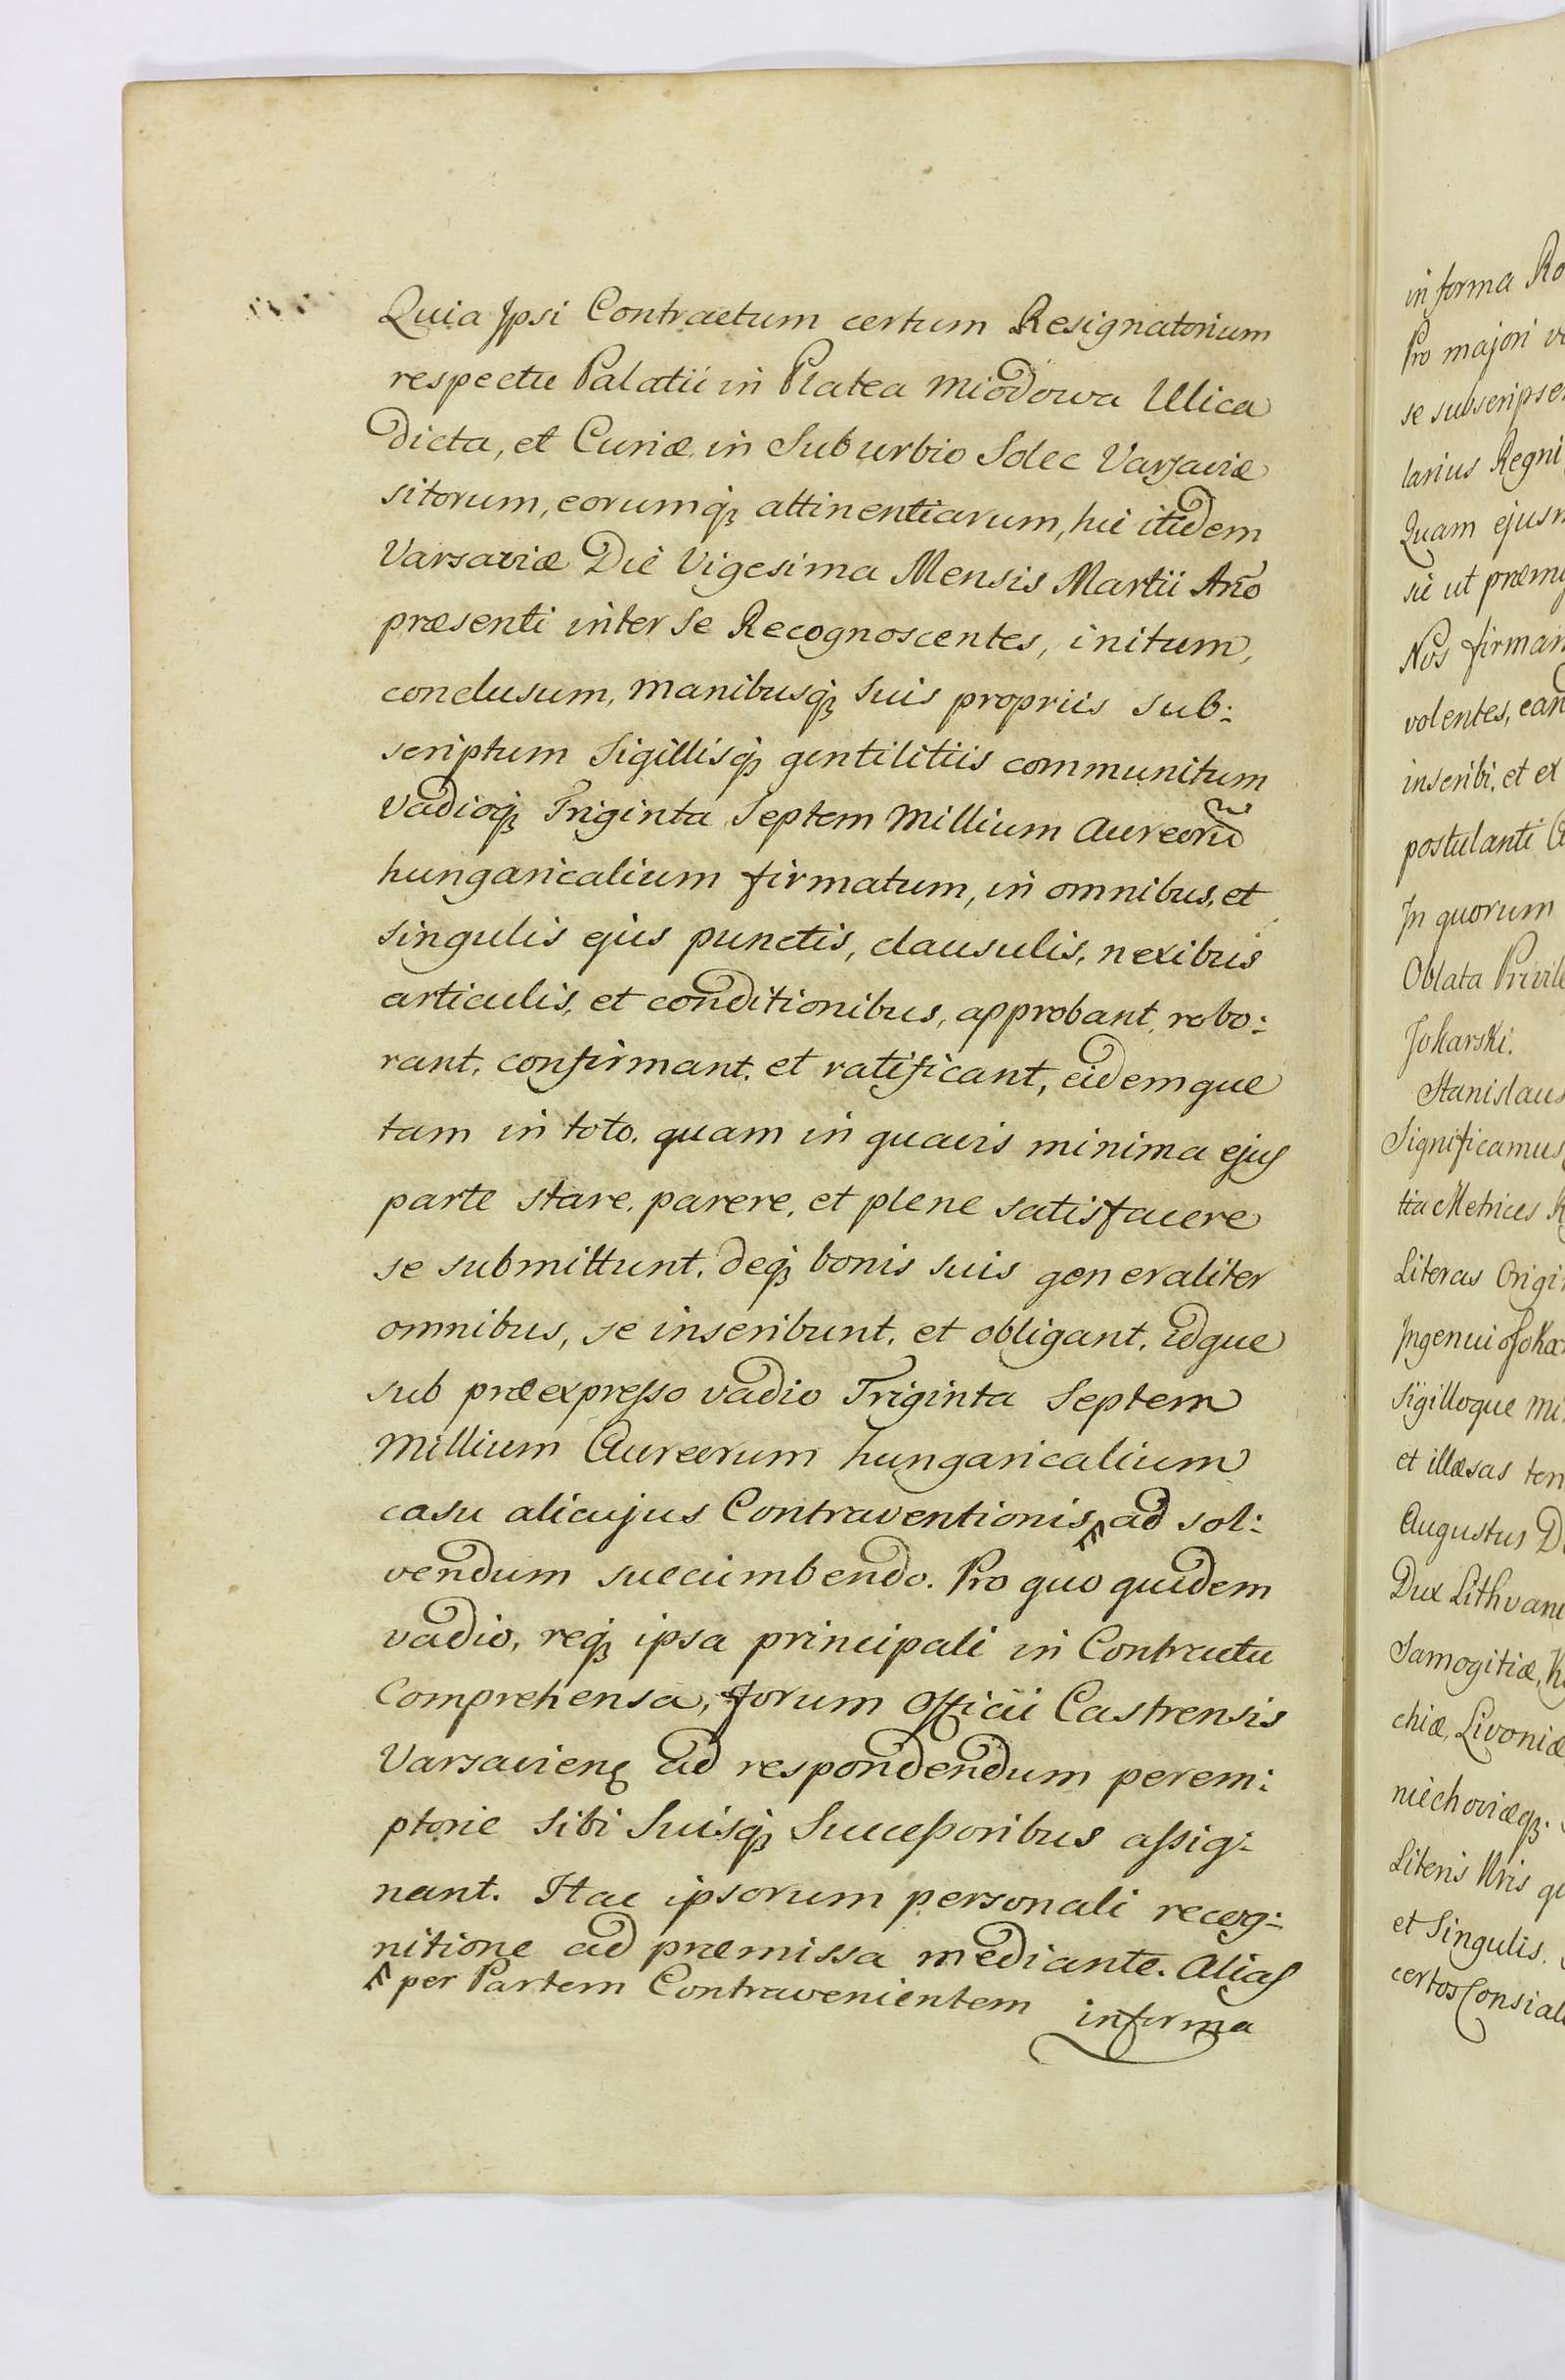 Quia Ipsi Contractum certum Resignatorium
respectu Palatii in Platea Miodowa Ulica
dicta, et Curiæ in Suburbio Solec Varsaviæ
sitorum, eorumq; attinentiarum, hic itidem
Varsaviæ Die Vigesima Mensis Martii Año
præsenti inter se Recognoscentes, initum,
conclusum, manibusq; suis propriis sub:
scriptum Sigillisq; gentilitiis communitum
Vadioq; Triginta Septem Millium Aureorũ
hungaricalium firmatum, in omnibus, et
singulis ejus punctis, clausulis, nexibus
articulis, et conditionibus, approbant, robo:
rant, confirmant, et ratificant, eidemque
tam in toto, quam in quavis minima ejus
parte stare, parere, et plene satisfacere
se submittunt, deq; bonis suis generaliter
omnibus, se inscribunt, et obligant, idque
sub præexpresso vadio Triginta Septem
Millium Aureorum hungaricalium
casu alicujus Contraventionis, ad sol:
vendum succumbendo. Pro quo quidem
vadio, req; ipsa principali in Contractu
Comprehensa, forum Officii Castrensis
Varsavien; ad respondendum perem:
ptorie sibi suisq; Successoribus assig:
nant. Hac ipsorum personali recog:
nitione ad præmissa mediante. Alias
per Partem Contravenientem
in forma
in forma Ro
Pro majori v
se subscripse
larius Regni
Quam ejusm
sic ut præmi
Nos firmam
volentes, ean
inscribi, et ex
postulanti
In quorum
Oblata Privile
Jokarski.
Stanislaus
Significamus
tia Metrices R
Literas Origi
Ingenui Joka
Sigilloque mi
et illæsas ten
Augustus D
Dux Lithvani
Samogitiæ, K
chiæ, Livoniæ
niechoviæq;
Literis Nris qu
et Singulis.
certos Consial